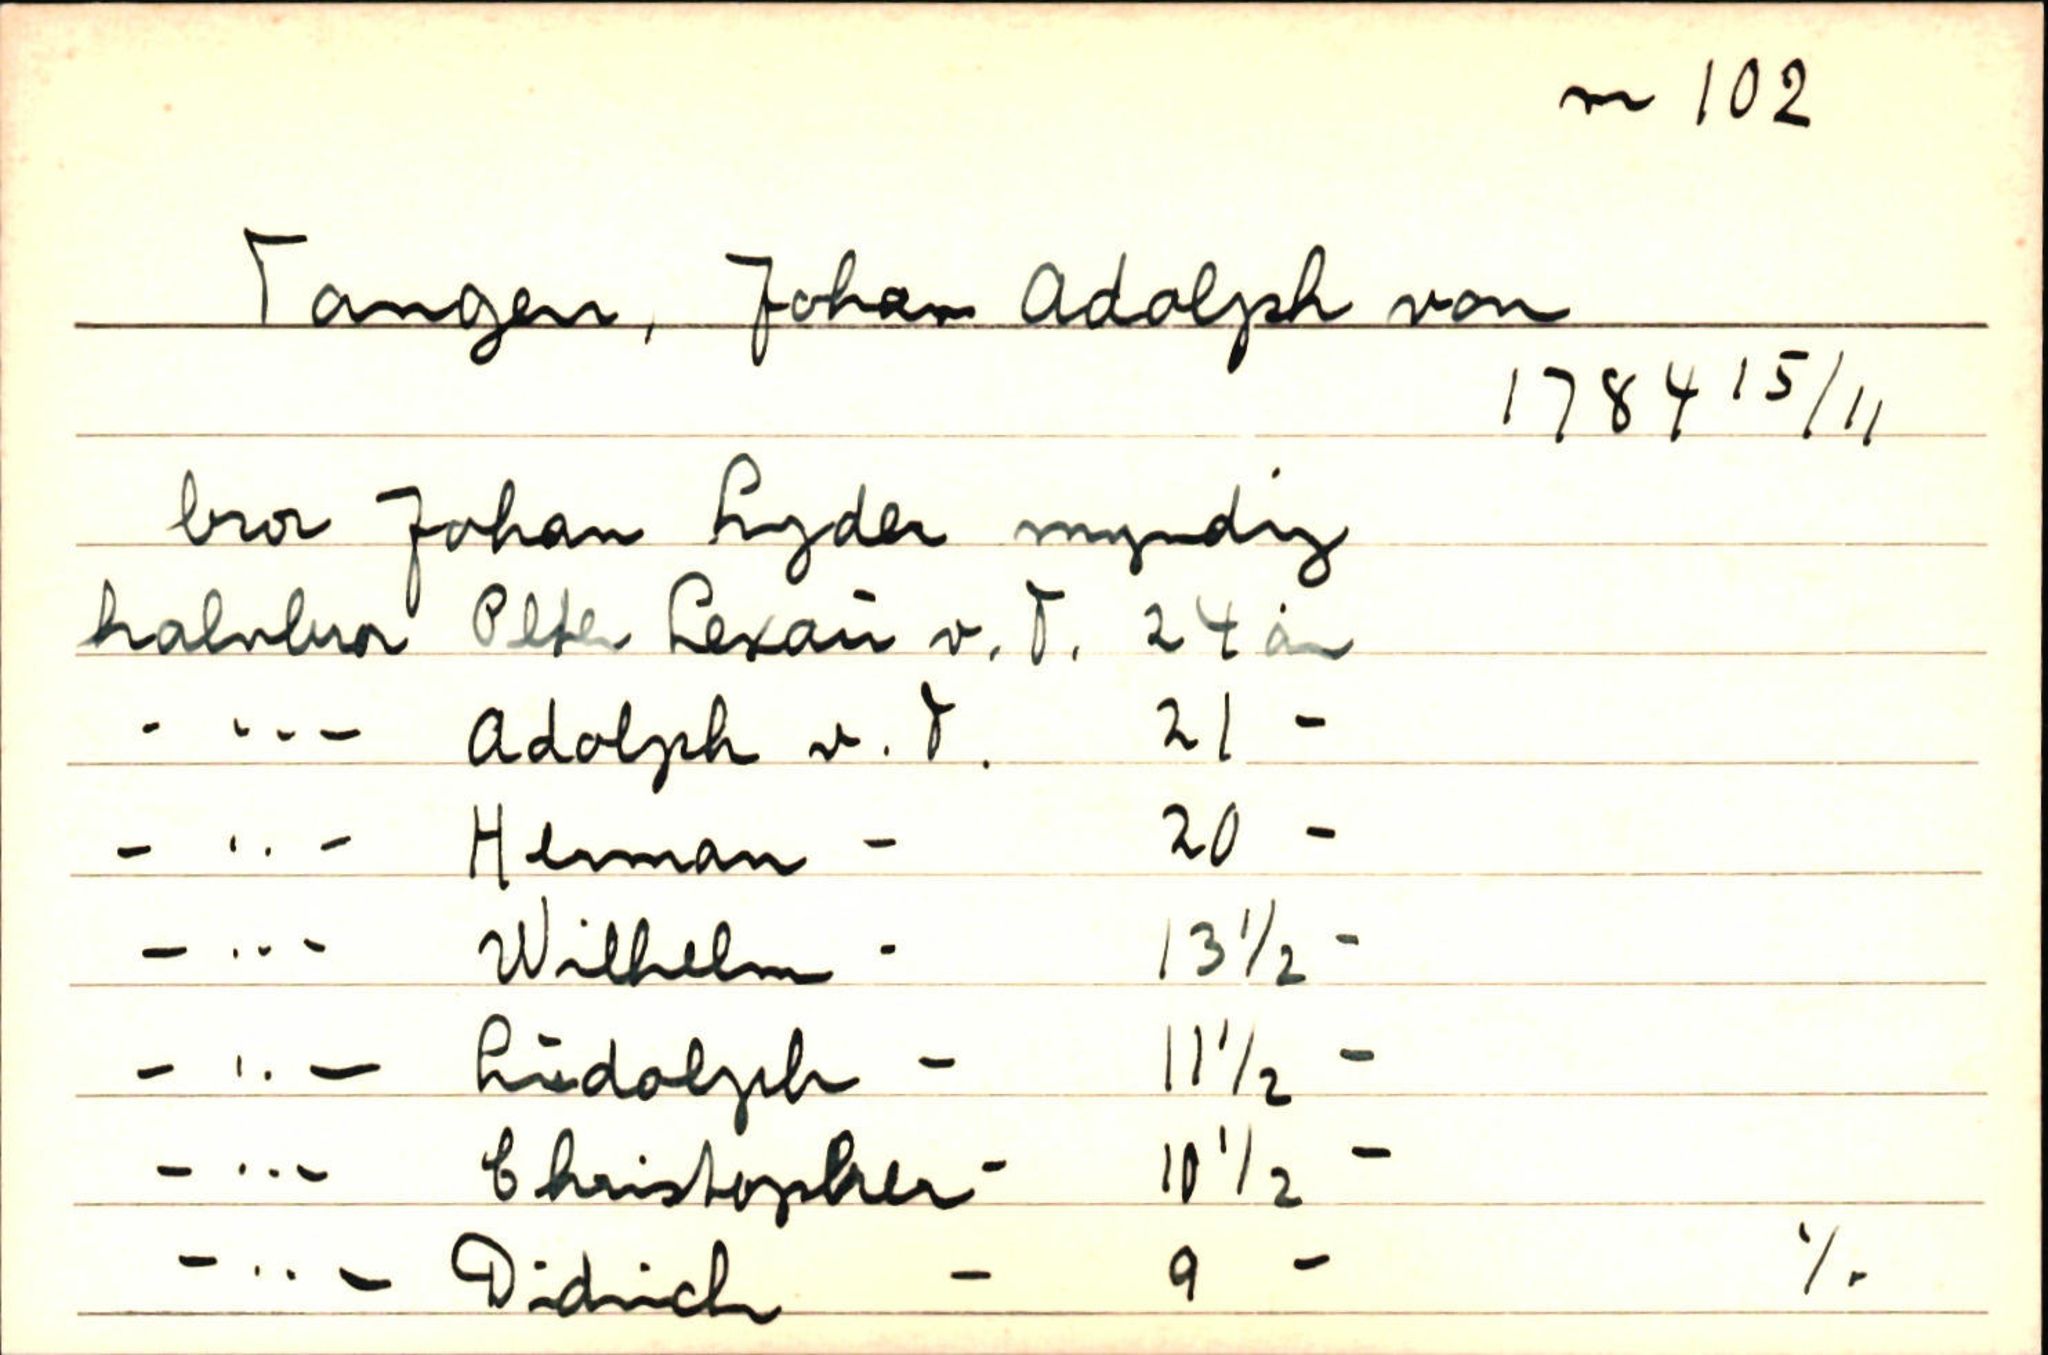 m 102
Tangen, Johan Adolph von
1784 15/11
bror Johan Lyder myndig
halvbror Peter Lexaŭ v. T. 24 år
- ,,- - Adolph v. T. 21 -
- ,, - Herman - 20 -
- ,, - Wilhelm - 13 1/2 -
- ,, - Lŭdolph - 11 1/2 -
- ,, - Christopher - 10 1/2 -
- ,, - Didrich - 9 - ./.